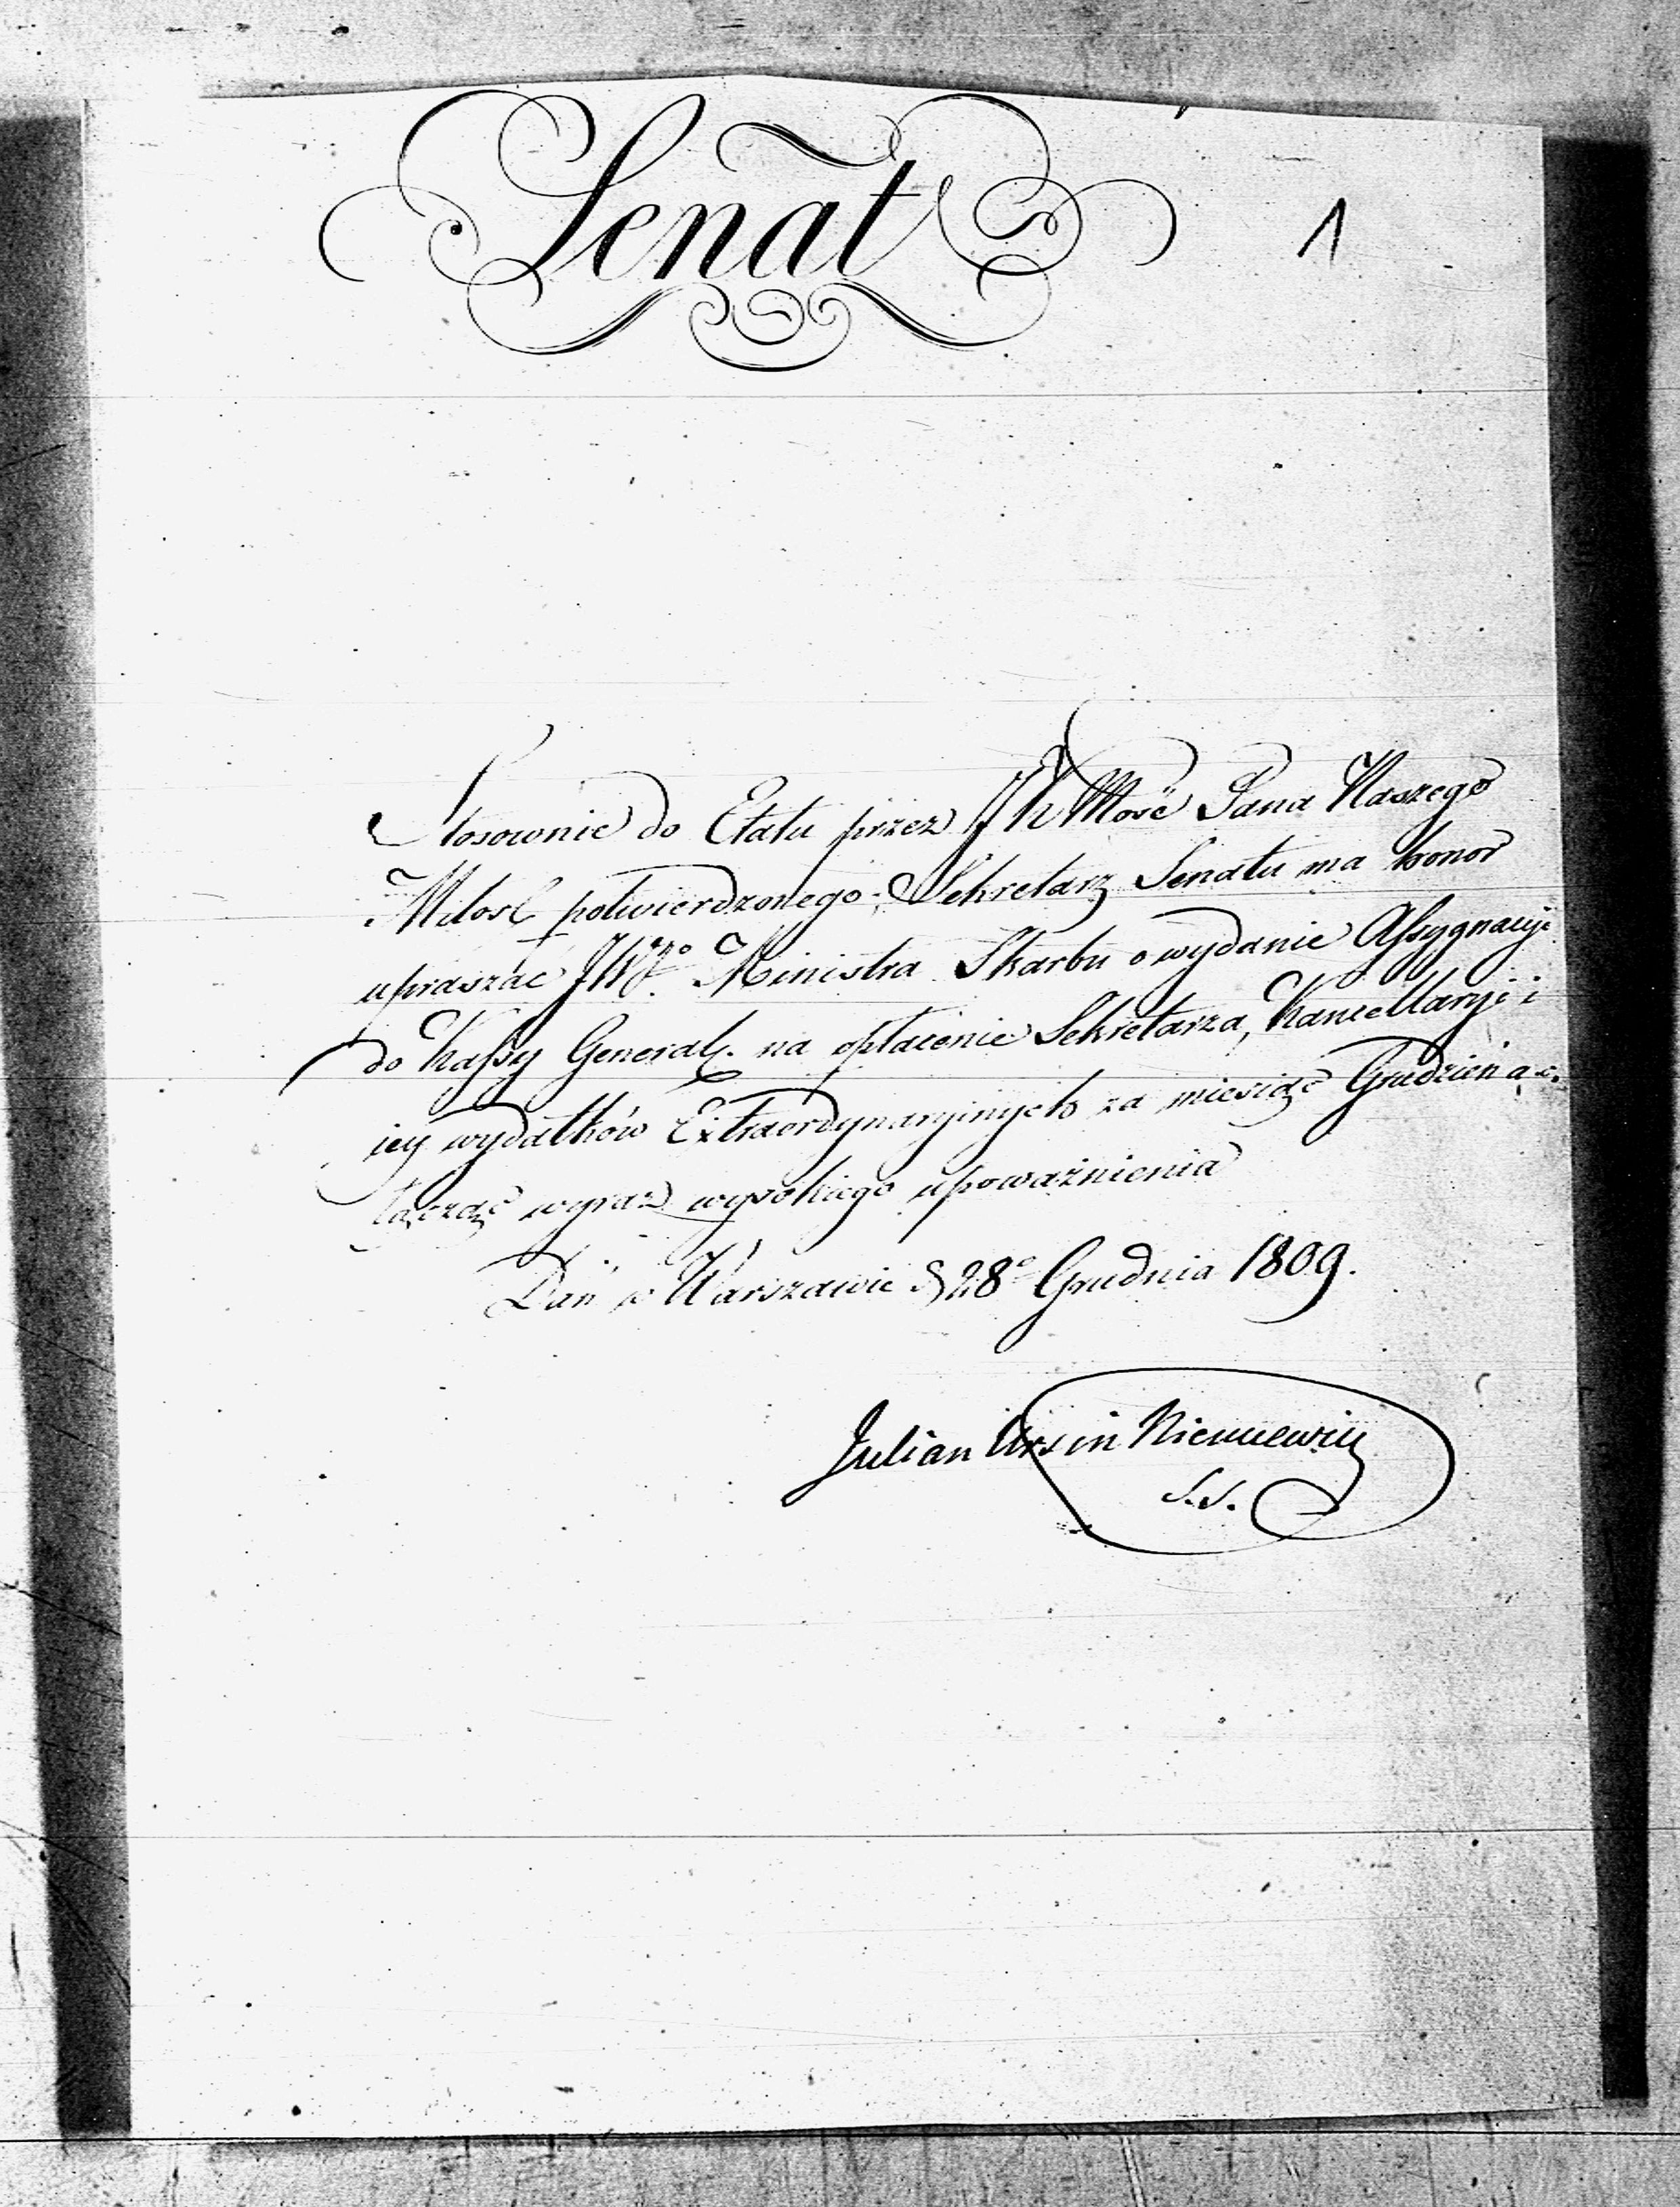 Senat
1
Stosownie do Etatu przez JKMość Pana Naszego
Miłość potwierdzonego; Sekretarz Senatu ma honor
upraszać JWgo Ministra Skarbu o wydanie Assygnacyi
do Kassy General. na opłacenie Sekretarza, Kancellaryi i
iey wydatków Extraordynaryinych za miesiąc Grudzień a. c.
łącząc wyraz wysokiego upoważnienia
Dań w Warszawie d 28o Grudnia 1809.
Julian Ursin Niemcewicz
S.S.